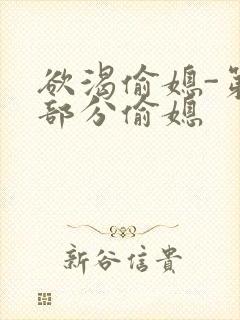 欲渴偷媳-第
部分偷媳
新谷信貴